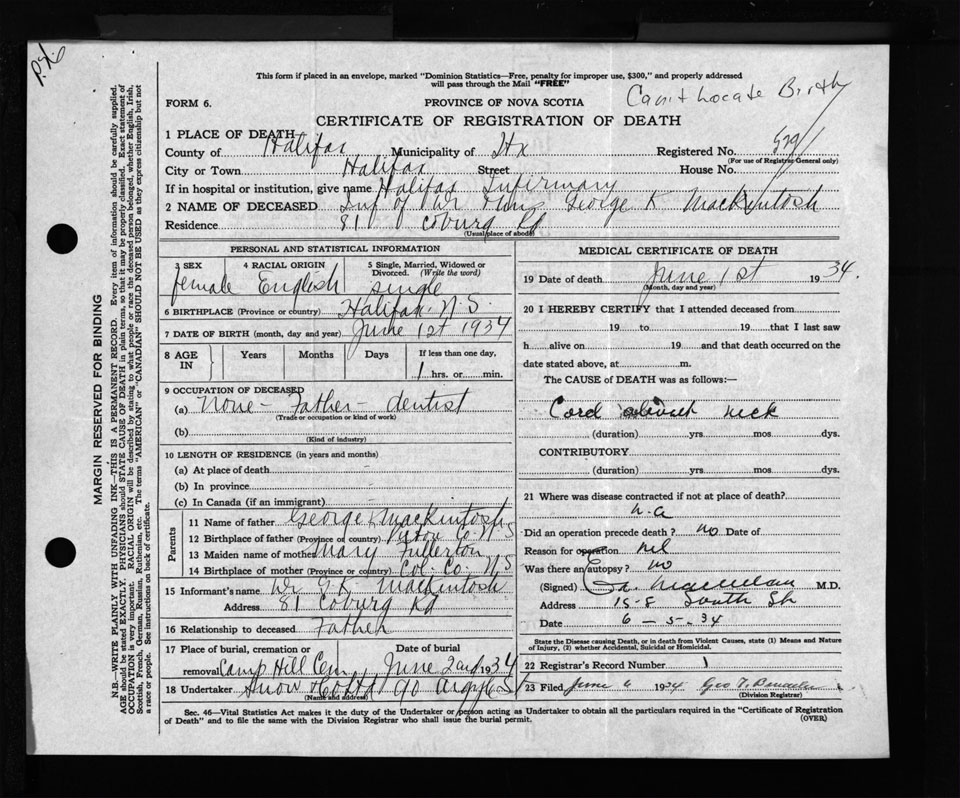 This form if placed in an envelope, marked "Dominion Statistics—Free, penalty for improper use, $300," and properly addressed
will pass through the Mail "FREE"
FORM 6.
PROVINCE OF NOVA SCOTIA
Can't Locate Birth
CERTIFICATE OF REGISTRATION OF DEATH
1 PLACE OF DEATH
County of Halifax Municipality of Hx Registered No.
(For use of Registrar General only)
City or Town Halifax Street House No.
If in hospital or institution, give name Halifax Infirmary
2 NAME OF DECEASED Inf of Dr & Mrs George K Mackintosh
Residence 81 Coburg Rd
(Usual place of abode)
PERSONAL AND STATISTICAL INFORMATION
3 SEX 4 RACIAL ORIGIN 5 Single, Married, Widowed or
Divorced. (Write the word)
female English single
6 BIRTHPLACE (Province or country) Halifax. N.S.
7 DATE OF BIRTH (month, day and year) June 1st 1934
8 AGE IN Years Months Days If less than one day,
1 hrs. or min.
9 OCCUPATION OF DECEASED
(a) None - Father - dentist
(Trade or occupation or kind of work)
(b)
(Kind of industry)
10 LENGTH OF RESIDENCE (in years and months)
(a) At place of death
(b) In province
(c) In Canada (if an immigrant)
Parents
11 Name of father George K Mackintosh
12 Birthplace of father (Province or country) Pictou Co N.S
13 Maiden name of mother Mary Fullerton
14 Birthplace of mother (Province or country) Col. Co. N.S
15 Informant's name Dr G.K. Mackintosh
Address 81 Coburg Rd
16 Relationship to deceased Father
17 Place of burial, cremation or Date of burial
removal Camp Hill Cem June 2nd 1934
18 Undertaker Snow Co Ltd 90 Argyle St
(Name and address)
MEDICAL CERTIFICATE OF DEATH
19 Date of death June 1st 1934.
(Month, day and year)
20 I HEREBY CERTIFY that I attended deceased from
19 to 19 that I last saw
h alive on 19 and that death occurred on the
date stated above, at m.
The CAUSE of DEATH was as follows:—
Cord about neck
(duration) yrs mos dys.
CONTRIBUTORY
(duration) yrs. mos dys.
21 Where was disease contracted if not at place of death?
n.a
Did an operation precede death? no Date of
Reason for operation nil
Was there an autopsy? no
(Signed) M.D.
Address 15-8 South St
Date 6-5-34
State the Disease causing Death, or in death from Violent Causes, state (1) Means and Nature
of Injury, (2) whether Accidental, Suicidal or Homicidal.
22 Registrar's Record Number 1
23 Filed June 6 1934 Geo T.
(Division Registrar)
Sec. 46—Vital Statistics Act makes it the duty of the Undertaker or person acting as Undertaker to obtain all the particulars required in the "Certificate of Registration
of Death" and to file the same with the Division Registrar who shall issue the burial permit.
(OVER)
MARGIN RESERVED FOR BINDING
N.B.—WRITE PLAINLY WITH UNFADING INK—THIS IS A PERMANENT RECORD. Every item of information should be carefully supplied.
AGE should be stated EXACTLY. PHYSICIANS should STATE CAUSE OF DEATH in plain terms, so that it may be properly classified. Exact statement of
OCCUPATION is very important. RACIAL ORIGIN will be described by stating to what people or race the deceased person belonged, whether English, Irish,
Scottish, French, German, Russian, Ruthenian, etc. The terms "AMERICAN" or "CANADIAN" SHOULD NOT BE USED as they express citizenship but not
a race or people. See instructions on back of certificate.